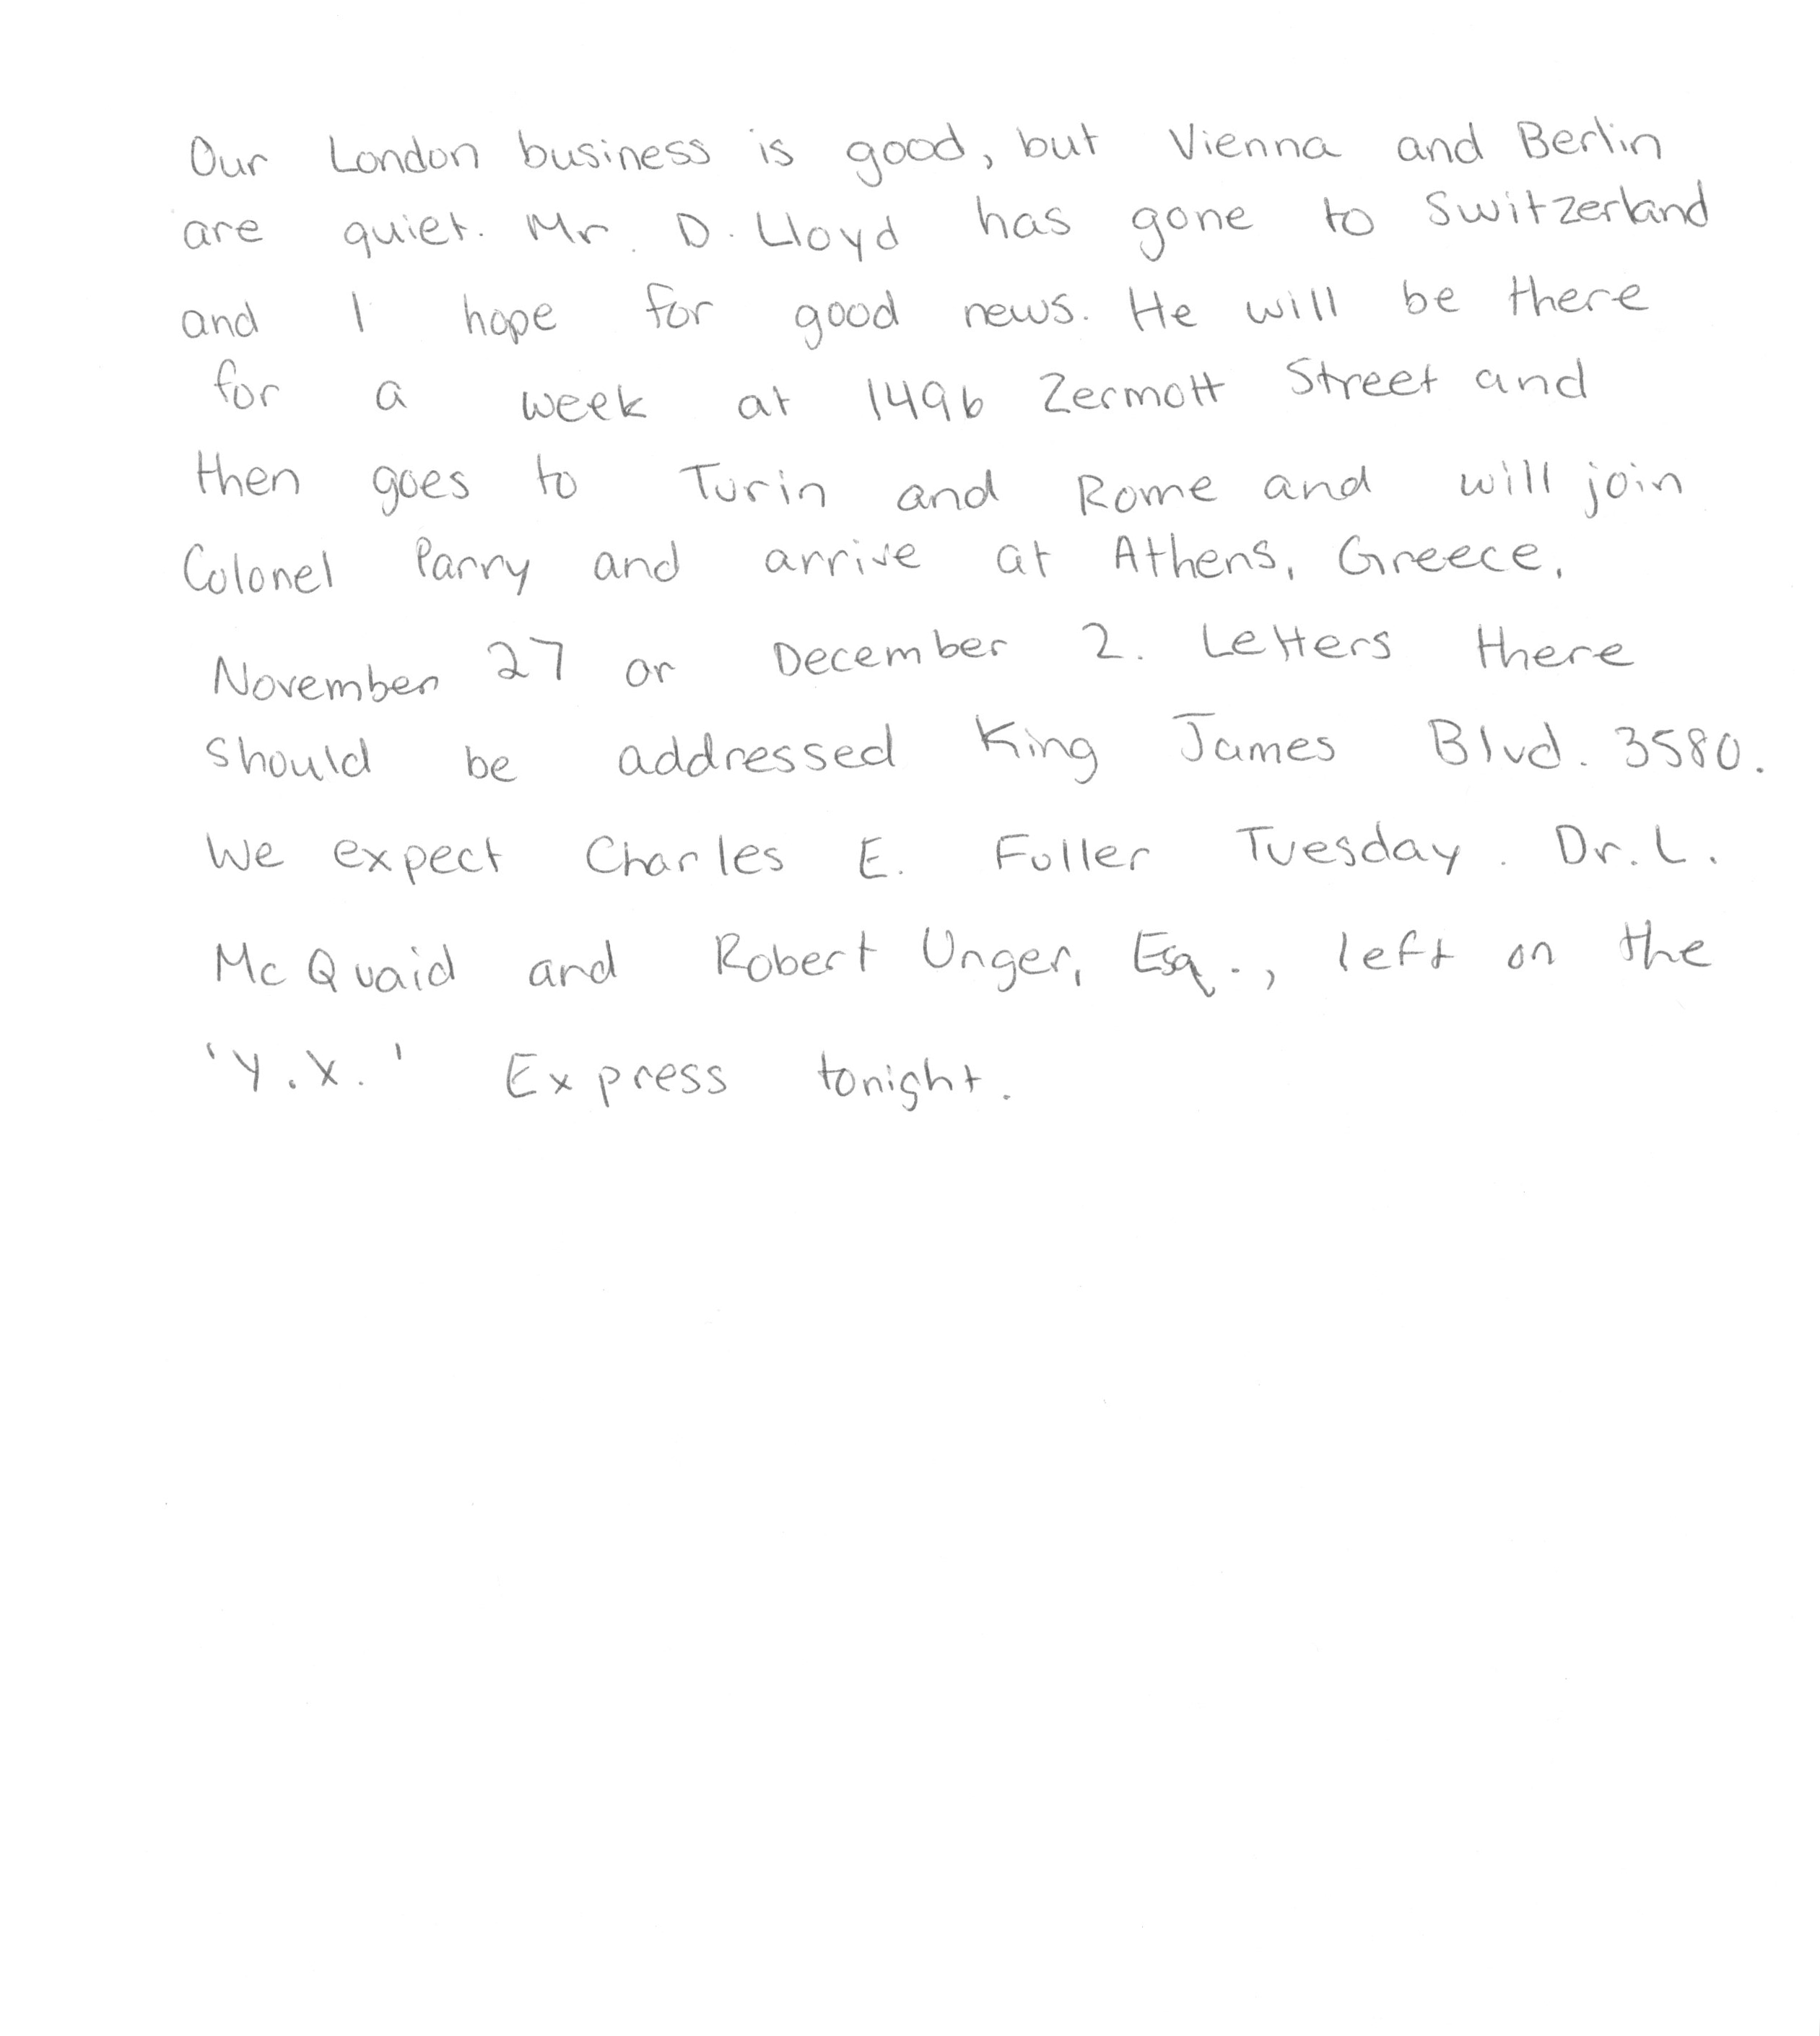 Our London business is good, but Vienna and Berlin
are quiet. Mr. D. Lloyd has gone to Switzerland
and I hope for good news. He will be there
for a week at 1496 Zermott Street and
then goes to Turin and Rome and will join
Colonel Parry and arrive at Athens, Greece,
November 27 or December 2. Letters there
should be addressed King James Blvd. 3580.
We expect Charles E. Fuller Tuesday. Dr. L.
McQuaid and Robert Unger, Esq., left on the
'Y.X.' Express tonight.